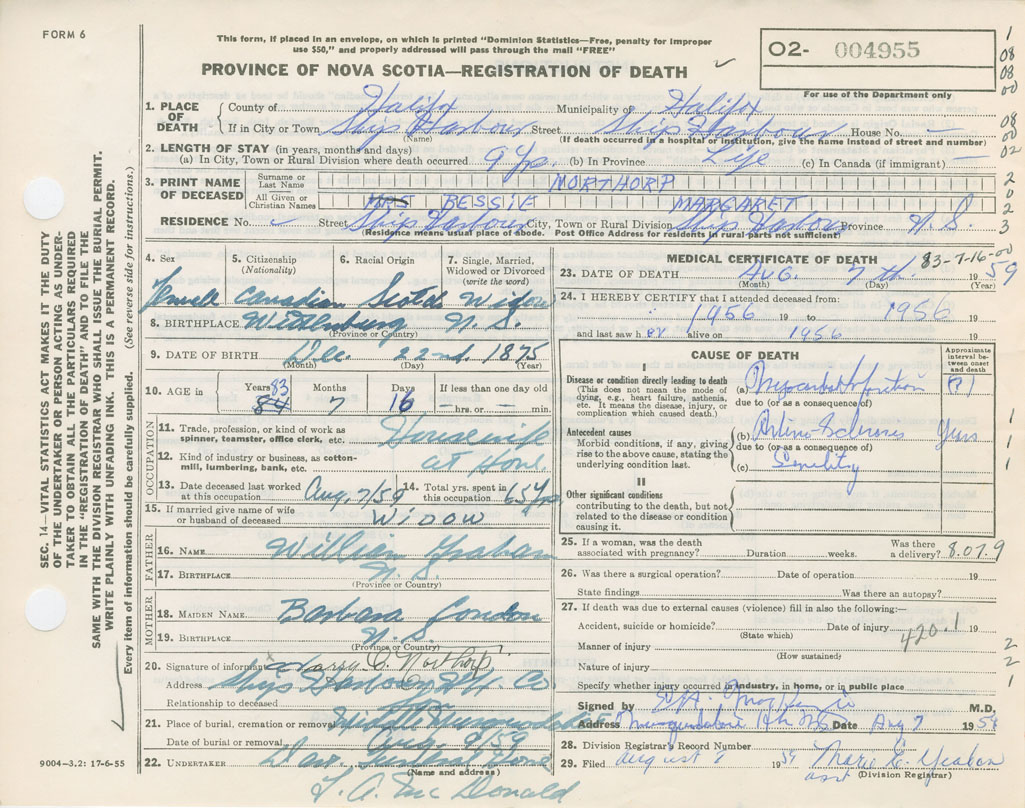 FORM 6
This form, if placed in an envelope, on which is printed "Dominion Statistics—Free, penalty for improper
use $50," and properly addressed will pass through the mail "FREE"
PROVINCE OF NOVA SCOTIA—REGISTRATION OF DEATH
O2- 004955
For use of the Department only
1. PLACE OF DEATH County of Halifax Municipality of Halifax
If in City or Town Ship Harbour Street Ship Harbour House No. —
(Name) (If death occurred in a hospital or institution, give the name instead of street and number)
2. LENGTH OF STAY (in years, months and days)
(a) In City, Town or Rural Division where death occurred 9 Yrs. (b) In Province Life (c) In Canada (if immigrant) —
3. PRINT NAME OF DECEASED Surname or Last Name MORTHORP
All Given or Christian Names MRS BESSIE MARGARET
RESIDENCE No. Street Ship Harbour City, Town or Rural Division Ship Harbour Province N.S.
(Residence means usual place of abode. Post Office Address for residents in rural parts not sufficient)
4. Sex 5. Citizenship (Nationality) 6. Racial Origin 7. Single, Married, Widowed or Divorced (write the word)
Female Canadian Scotch Widow
8. BIRTHPLACE N.S.
(Province or Country)
9. DATE OF BIRTH Dec. 22nd. 1875
(Month) (Day) (Year)
10. AGE in Years 84 83 Months 7 Days 16 If less than one day old — hrs. or — min.
OCCUPATION
11. Trade, profession, or kind of work as spinner, teamster, office clerk, etc. Housewife
12. Kind of industry or business, as cotton-mill, lumbering, bank, etc. at Home
13. Date deceased last worked at this occupation Aug. 7/59 14. Total yrs. spent in this occupation 65 Yrs
15. If married give name of wife or husband of deceased Widow
FATHER
16. NAME William Graham
17. BIRTHPLACE N.S.
(Province or Country)
MOTHER
18. MAIDEN NAME Barbara Condon
19. BIRTHPLACE N.S.
(Province or Country)
20. Signature of informant Northorp
Address Ship Harbour Hfx. Co
Relationship to deceased
21. Place of burial, cremation or removal Musquodoboit
Date of burial or removal Aug. 9/59
22. UNDERTAKER
(Name and address)
McDonald
9004—3.2: 17-6-55
MEDICAL CERTIFICATE OF DEATH
83-7-16-00
23. DATE OF DEATH Aug. 7th. 1959
(Month) (Day) (Year)
24. I HEREBY CERTIFY that I attended deceased from:
1956 19 to 1956 19
and last saw h er alive on 1956 19
CAUSE OF DEATH
Approximate interval between onset and death
I
Disease or condition directly leading to death
(This does not mean the mode of dying, e.g., heart failure, asthenia, etc. It means the disease, injury, or complication which caused death.)
(a) Myocardial Infarction (?)
due to (or as a consequence of)
Antecedent causes
Morbid conditions, if any, giving rise to the above cause, stating the underlying condition last.
(b) Arterio-Sclerosis Years
due to (or as a consequence of)
(c) Senility
II
Other significant conditions
contributing to the death, but not related to the disease or condition causing it.
25. If a woman, was the death associated with pregnancy? Duration weeks. Was there a delivery? 8.07.9
26. Was there a surgical operation? Date of operation 19
State findings Was there an autopsy?
27. If death was due to external causes (violence) fill in also the following:—
Accident, suicide or homicide? Date of injury 19
(State which)
420.1
Manner of injury
(How sustained)
Nature of injury
Specify whether injury occurred in industry, in home, or in public place
Signed by M.D.
Address Musquodoboit Hbr NS Date Aug 7 1959
28. Division Registrar's Record Number
29. Filed August 8 1959 Marie E. Yeadon
asst (Division Registrar)
SEC. 14—VITAL STATISTICS ACT MAKES IT THE DUTY
OF THE UNDERTAKER OR PERSON ACTING AS UNDER-
TAKER TO OBTAIN ALL THE PARTICULARS REQUIRED
IN THE "REGISTRATION OF DEATH" AND TO FILE THE
SAME WITH THE DIVISION REGISTRAR WHO SHALL ISSUE THE BURIAL PERMIT.
WRITE PLAINLY WITH UNFADING INK. THIS IS A PERMANENT RECORD.
Every item of information should be carefully supplied. (See reverse side for instructions.)
1
08
08
00
08
00
02
2
0
2
3
1
1
1
2
2
1